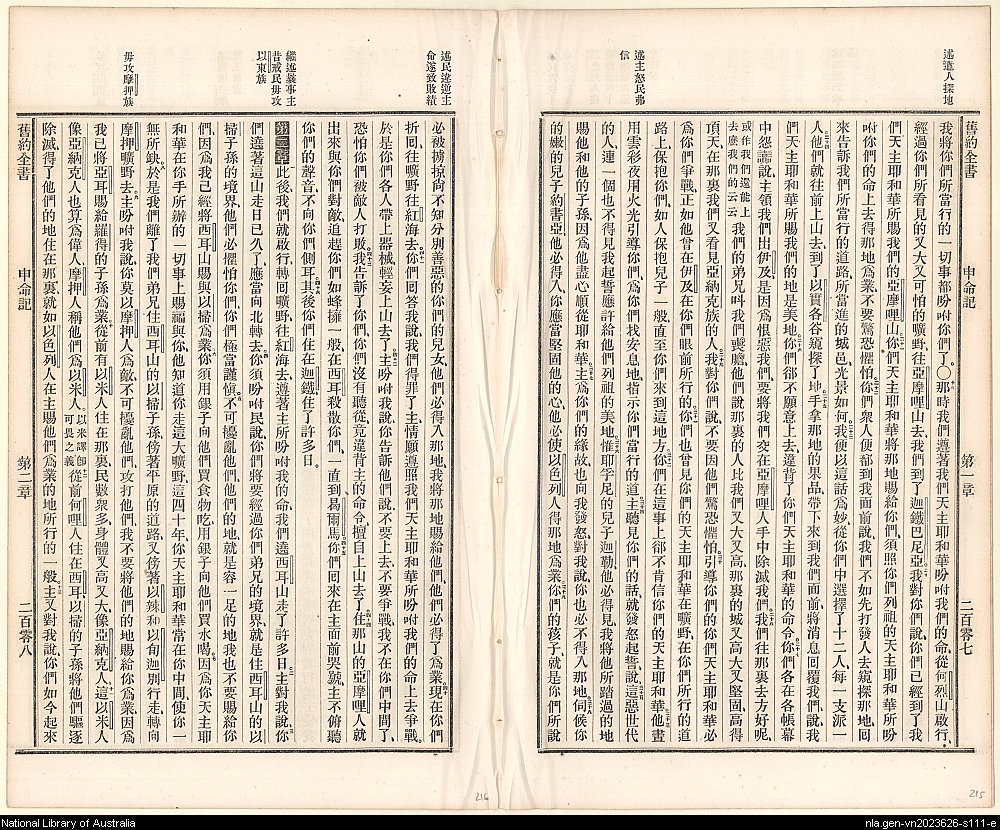 述遣人探地
述主怒民弗
信
舊約全書 申命記 第一章 二百零七
我將你們所當行的一切事都吩咐你們了〇那時我們遵著我們天主耶和華吩咐我們的命從何烈山啟行
經過你們所看見的又大又可怕的曠野往亞摩哩山去我們到了迦鐵巴尼亞我對你們說你們已經到了我
們天主耶和華所賜我們的亞摩哩山你們天主耶和華將那地賜給你們須照你們列祖的天主耶和華所吩
咐你們的命上去得那地為業不要驚恐懼怕你們衆人便都到我面前說我們不如先打發人去窺探那地回
來告訴我們所當行的道路所當進的城邑光景如何我便以這話為妙從你們中選擇了十二人每一支派一
人他們就往前上山去到了以實各谷窺探了地手拿那地的果品帶下來到我們面前將消息回覆我們說我
們天主耶和華所賜我們的地是美地你們卻不願意上去違背了你們天主耶和華的命令你們各在各帳幕
中怨讟說主領我們出伊及是因為恨惡我們要將我們交在亞摩哩人手中除滅我們我們往那裏去方好呢
或作我們還能上去麼我們的云云我們的弟兄呌我們喪膽他們說那裏的人比我們又大又高那裏的城又高大又堅固高得
頂天在那裏我們又看見亞納克族的人我對你們說不要因他們驚恐懼怕引導你們的你們天主耶和華必
為你們爭戰正如他曾在伊及在你們眼前所行的你們也曾見你們的天主耶和華在曠野在你們所行的道
路上保抱你們如人保抱兒子一般直至你們來到這地方你們在這事上卻不肯信你們的天主耶和華他晝
用雲彩夜用火光引導你們為你們找安息地指示你們當行的道主聽見你們的話就發怒起誓說這惡世代
的人連一個也不得見我起誓應許給他們列祖的美地惟耶孚尼的兒子迦勒他必得見我將他所踏過的地
賜他和他的子孫因為他盡心順從耶和華主為你們的緣故也向我發怒對我說你也必不得入那地伺候你
的嫩的兒子約書亞他必得入你應當堅固他的心他必使以色列人得那地為業你們的孩子就是你們所說
述民違逆主
命遂致敗績
繼述曩事主
昔戒民毋攻
以東族
毋攻摩押族
必被擄掠尚不知分別善惡的你們的兒女他們必得入那地我將那地賜給他們他們必得了為業現在你們
折回往曠野往紅海去你們回答我說我們得罪了主情願遵照我們天主耶和華所吩咐我們的命上去爭戰
於是你們各人帶上器械輕妄上山去了主吩咐我說你告訴他們說不要上去不要爭戰我不在你們中間了
恐怕你們被敵人打敗我告訴了你們你們沒有聽從竟違背主的命令擅自上山去了住那山的亞摩哩人就
出來與你們對敵追趕你們如蜂擁一般在西耳殺散你們一直到曷爾馬你們回來在主面前哭號主不俯聽
你們的聲音不向你們側耳其後你們住在迦鐵住了許多日
第二章此後我們就啟行轉回曠野往紅海去遵著主所吩咐我的命我們遶西耳山走了許多日主對我說你
們遶著這山走日已久了應當向北轉去你須吩咐民說你們將要經過你們弟兄的境界就是住西耳山的以
掃子孫的境界他們必懼怕你們你們極當謹愼不可擾亂他們他們的地就是容一足的地我也不要賜給你
們因為我已經將西耳山賜與以掃為業你須用銀子向他們買食物吃用銀子向他們買水喝因為你天主耶
和華在你手所辦的一切事上賜福與你他知道你走這大曠野這四十年你天主耶和華常在你中間使你一
無所缺於是我們離了我們弟兄住西耳山的以掃子孫傍著平原的道路又傍著以辣和以旬迦別行走轉向
摩押曠野去主吩咐我說你莫以摩押人為敵不可擾亂他們攻打他們我不要將他們的地賜給你為業因為
我已將亞耳賜給羅得的子孫為業從前有以米人住在那裏民數衆多身體又高又大像亞納克人這以米人
像亞納克人也算為偉人摩押人稱他們為以米人以米譯即可畏之義從前何哩人住在西耳以掃的子孫將他們驅逐
除滅得了他們的地住在那裏就如以色列人在主賜他們為業的地所行的一般主又對我說你們如今起來
舊約全書 申命記 第二章 二百零八
216
215
National Library of Australia
nla.gen-vn2023626-s111-e